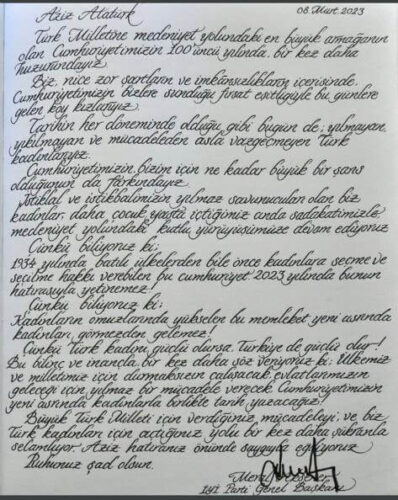 Aziz Atatürk 08 Mart 2023
Türk Milletine medeniyet yolundaki en büyük armağanın
olan Cumhuriyetimizin 100'üncü yılında, bir kez daha
huzurundayız.
Biz, nice zor şartların ve imkânsızlıkların içerisinde,
Cumhuriyetimizin bizlere sunduğu fırsat eşitliğiyle bu günlere
gelen köy kızlarıyız.
Tarihin her döneminde olduğu gibi bugün de; yılmayan,
yıkılmayan ve mücadeleden asla vazgeçmeyen Türk
kadınlarıyız.
Cumhuriyetimizin bizim için ne kadar büyük bir şans
olduğunun da farkındayız.
İstiklal ve istikbalimizin yılmaz savunucuları olan biz
kadınlar, daha çocuk yaşta içtiğimiz anda sadakatimizle
medeniyet yolundaki kutlu yürüyüşümüze devam ediyoruz.
Çünkü biliyoruz ki;
1934 yılında batılı ülkelerden bile önce kadınlara seçme ve
seçilme hakkı verebilen bu cumhuriyet 2023 yılında bunun
hatırasıyla yetinemez!
Çünkü biliyoruz ki;
Kadınların omuzlarında yükselen bu memleket yeni asrında
kadınları, görmezden gelemez!
Çünkü Türk kadını güçlü olursa, Türkiye de güçlü olur!
Bu bilinç ve inançla, bir kez daha söz veriyoruz ki; Ülkemiz
ve milletimiz için durmaksızın çalışacak, evlatlarımızın
geleceği için yılmaz bir mücadele verecek, Cumhuriyetimizin
yeni asrında kadınlarla birlikte tarih yazacağız!
Büyük Türk Milleti için verdiğiniz mücadeleyi ve biz
Türk kadınları için açtığınız yolu bir kez daha şükranla
selamlıyor, Aziz hatıranız önünde saygıyla eğiliyoruz.
Ruhunuz şad olsun.
Meral Akşener
İYİ Parti Genel Başkanı